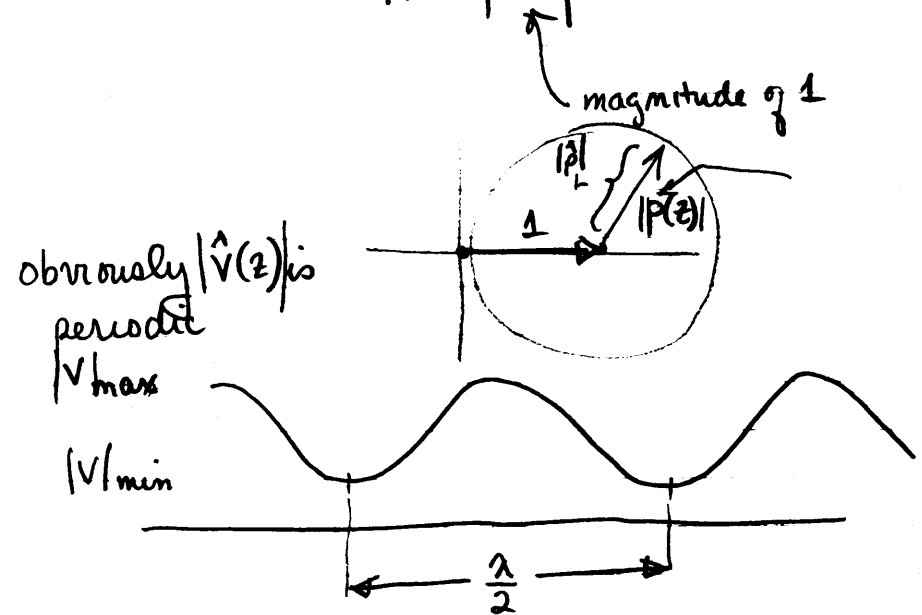 magnitude of 1
|ρ̂_L|
|ρ(z)|
1
obviously |V̂(z)| is
periodic
|V|max
|V|min
λ/2